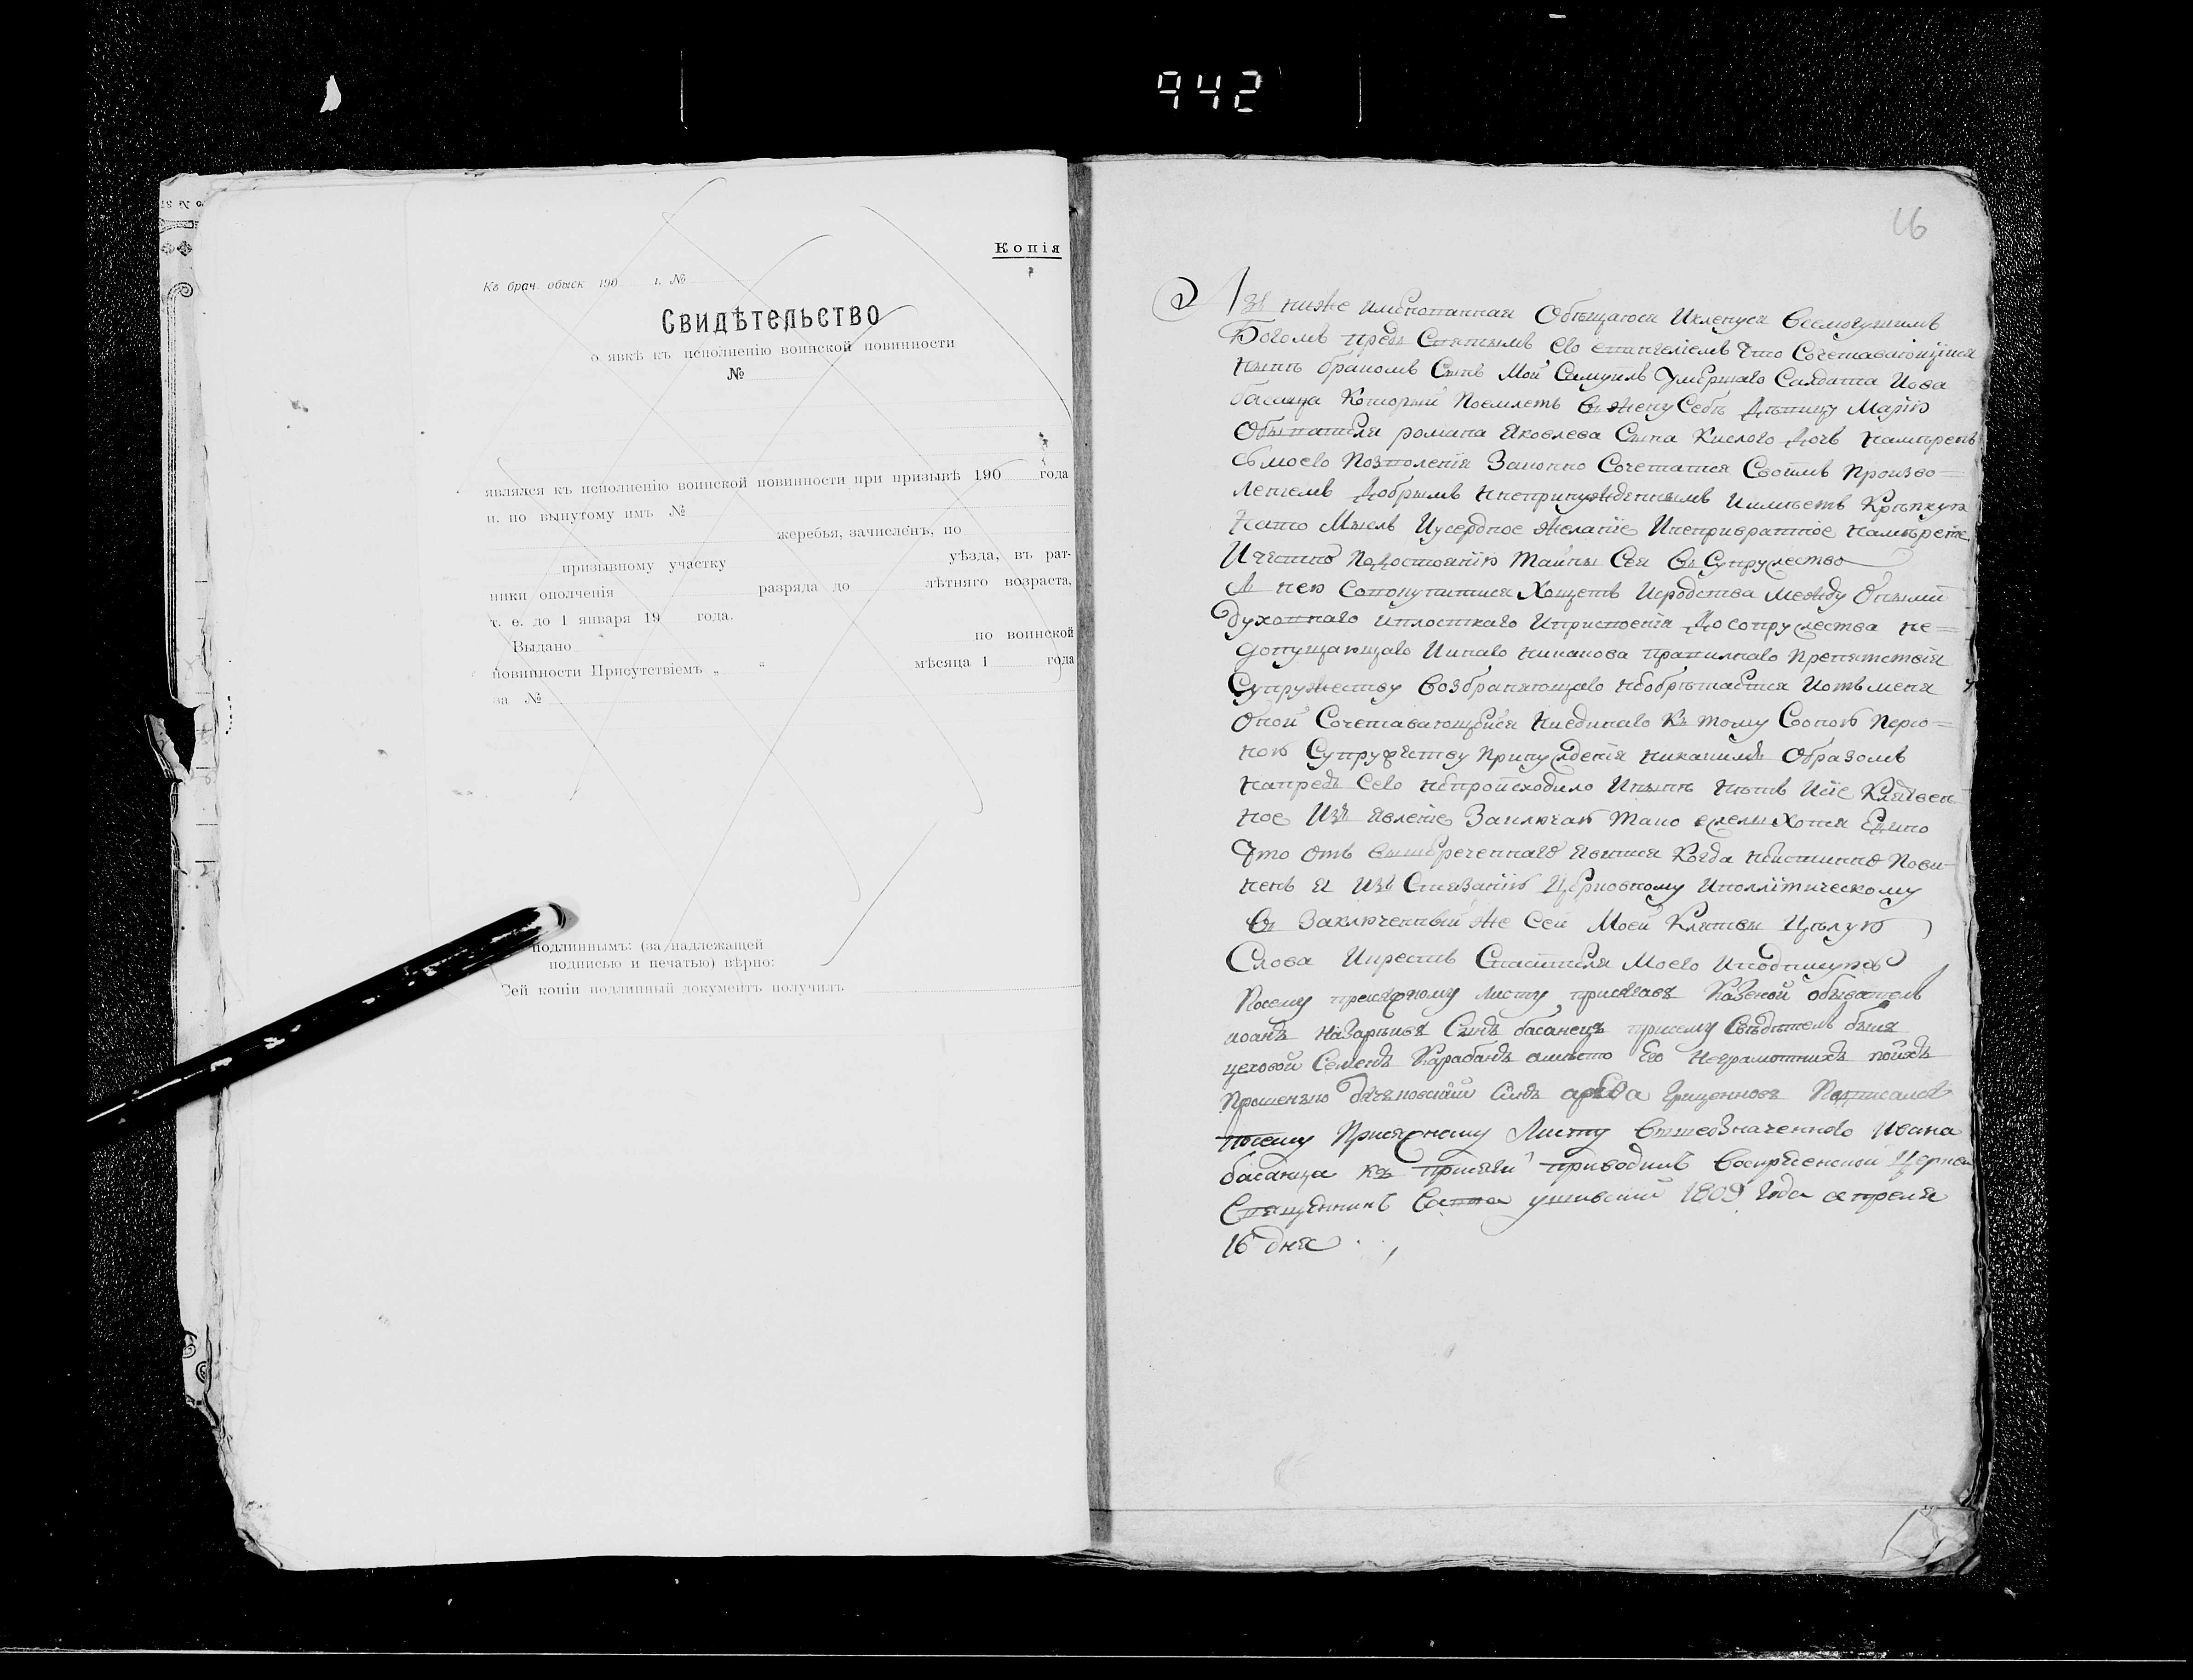 942
Копія
Къ брач. обыск 190 г. №
Свидѣтельство
о явкѣ къ исполненію воинской повинности
№
являлся къ исполненію воинской повинности при призывѣ 190 года
и. по вынутому имъ №
жеребья, зачисленъ, по
призывному участку уѣзда, въ рат-
ники ополченія разряда до лѣтняго возраста,
т. е. до 1 января 19 года.
Выдано по воинской
повинности Присутствіемъ „ “ мѣсяца 1 года
за №
подлиннымъ: (за надлежащей
подписью и печатью) вѣрно:
Сей копіи подлинный документъ получилъ
16
Азъ ниже имѣнованная Обѣщаюся Икленуся Всемогущимъ
Богомъ предъ Святымъ его евангеліемъ Что Сочетавающійся
нынѣ бракомъ Сынъ Мой Самуилъ Умершаго Салдата Иова
басанца Который Поемлетъ Въ жену Себѣ Дѣвицу Марію
Обывателя романа Яковлева Сына Кислого Дочь намѣренъ
съ моего Позволенія Законно Сочетатся Своимъ Произво=
леніемъ Добрымъ Инепринужденнымъ Иимѣетъ Крѣпкую
Нато Мысль Иусердное желаніе Инепривратное намѣреніе
Ичестно Подостоянію Тайны Сея Въ Супружество
А нею Совокупитися Хощетъ Исродства между Оными
духовнаго иплосткаго Иприсвоенія До сопружества не=
допущающаго Иинаго никакова правилнаго Препятствія
Супружеству Возбраняющаго необрѣтается Иотъ меня
Оной Сочетавающейся Ниединаго Къ тому Соопою Персо=
ною Супружеству Принужденія никакимъ Образомъ
напредъ Сего непроисходило Инынѣ Нѣтъ Исіе Клятвен
ное Изъ явленіе Заключаю Тако ежели Хотя Едино
Что Отъ Вышереченнаго Явится Когда неистинно Пови-
ненъ я Изъ Стязанію Церковному Иполлитическому
Въ Заключенный же Сей Моей Клятвы Цѣлую
Слова Икрестъ Спасителя Моего Иподпишуюсь
Посему присяжному листу присягавъ Казеной обыватель
иоанъ назарьивъ Сынъ басанецъ присему Свѣдѣтель былъ
цеховой Семенъ Карабанъ вмѣсто Его неграмотнихъ поихъ
Прошенью Сынъ Подписался
посему Присяжнему Листу Вышеозначенного Ивана
басанца къ присяги приводилъ Воскрѣсенской Церкви
Священникъ 1809 Года апреля
16 дня